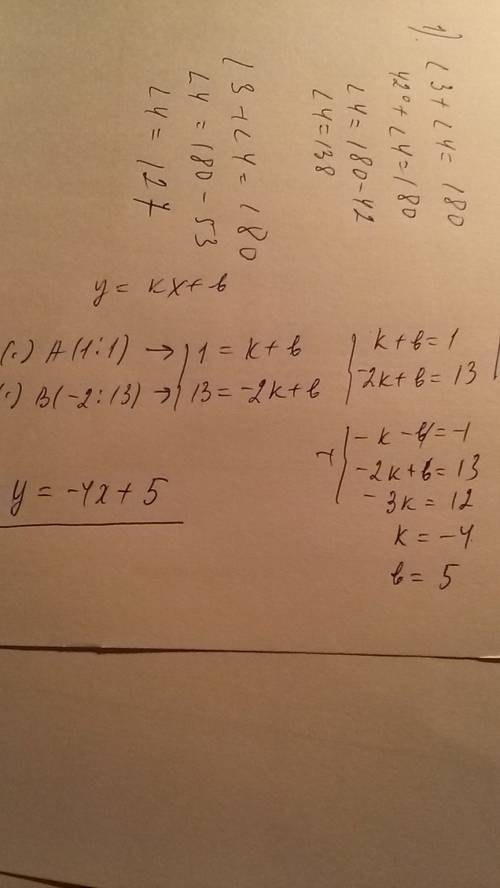 1).
∠3+∠4= 180
42°+∠4=180
∠4= 180-42
∠4=138
∠3+∠4 = 180
∠4 = 180 - 53
∠4 = 127
y = kx + b
(·) A(1:1) → { 1 = k + b
(·) B(-2:13) → { 13 = -2k + b
{ k + b = 1
-2k + b = 13
+ { -k - b = -1
-2k + b = 13
-3k = 12
k = -4
b = 5
y = -4x + 5